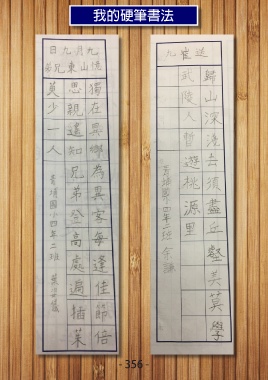 我的硬筆書法
送崔九
歸山深淺去須盡丘壑美莫學
武陵人暫遊桃源里
九月九日
憶山東兄弟
獨在異鄉為異客每逢佳節倍
思親遙知兄弟登高處遍插茱
萸少一人
青埔國小四年二班
- 356 -